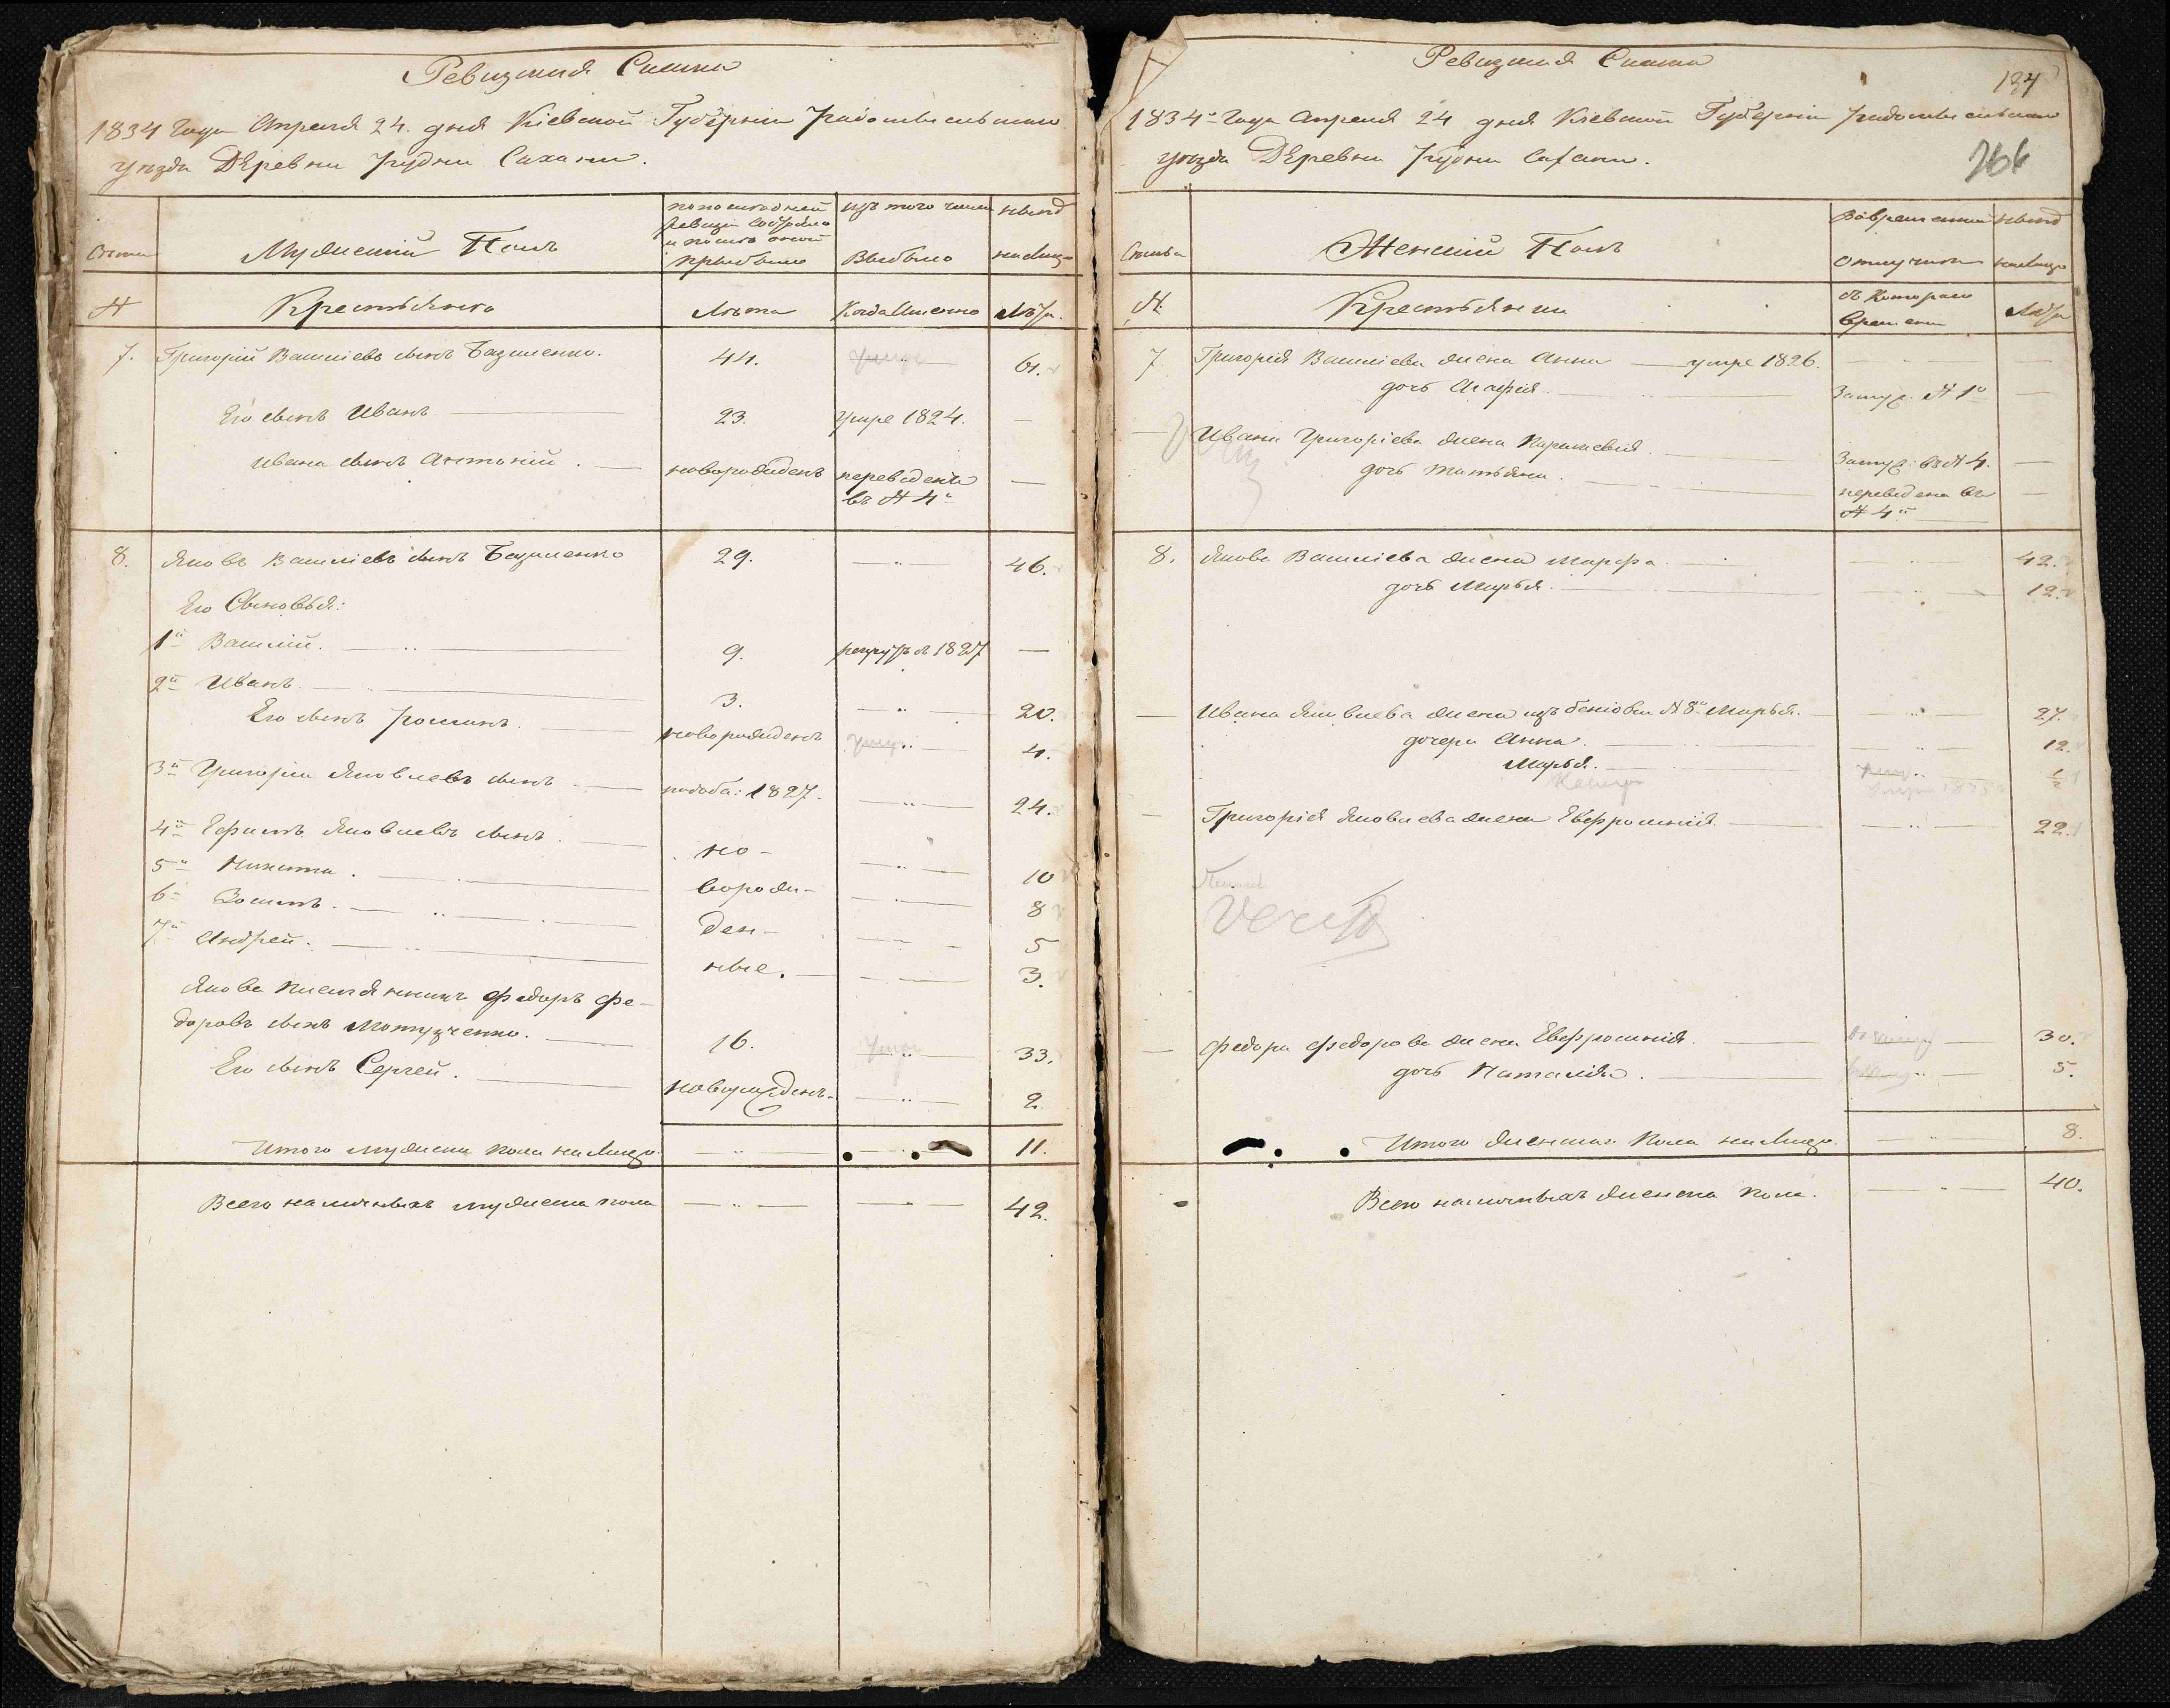 Ревизская Сказка
1834 Года Апреля 24. дня Кіевской Губерніи Радомысльскаго
уезда Деревни Рудни Сахани.
Статьи
Мужеский Полъ
по последней
Ревизіи состояло
и после оной
прыбыло
изъ того числа
Выбыло
ныне
на лицо
№
Крестьянъ
Лета
Когда Именно
Лета.
7. Григорій Василіевъ сынъ Базиленко. 44. 61.
Его сынъ Иванъ 23. умре 1824. —
Ивана сынъ Антоній новорожденъ переведенъ —
въ № 4й
8. Яковъ Василіевъ сынъ Базиленко 29. — 46.
Его Сыновья:
1й Василій. 9. рекрутъ в 1827 —
2й Иванъ 3. — 20.
Его сынъ новорожденъ 4.
3й Григорій Яковлевъ сынъ 1827. — 24.
4й Ефимъ Яковлевъ сынъ но- — 10
5й Никита. ворож- — 8
6й Зосимъ. ден- — 5
7й Андрей. ные. — 3.
Якова племянникъ Федоръ Фе-
доровъ сынъ 16. 33.
Его сынъ Сергей. новорожденъ — 2.
Итого мужеска пола на лицо — 11.
Всего наличныхъ мужеска пола — — 42.
Ревизская Сказка
134
1834го Года Апреля 24 дня Кіевской Губерніи Радомысльскаго
уезда Деревни Рудни Сахани.
266
Статьи
Женский Полъ
Во временной
отлучке
ныне
на лицо
№.
Крестьянки
съ Котораго
Времени
Лета
7 Григорія Василіева жена Анна — умре 1826. — —
дочь Агафія. Замуж. № 1й —
— Ивана Григоріева жена Параскевія. Замуж: въ № 4. —
дочь Татьяна. переведена въ —
№ 4й
8. Якова Василіева жена Марфа. — 42.
дочь Марья. — 12.
— Ивана Яковлева жена изъ № 8й Марья. — 27.
дочери Анна. — 12.
Марья. ½
— Григорія Яковлева жена Евфросинія. — 22.
— Федора Федорова жена Евфросинія. 30.
дочь Наталія. 5.
Итого женска Пола на лицо. — 8.
Всего наличныхъ женска пола. — 40.